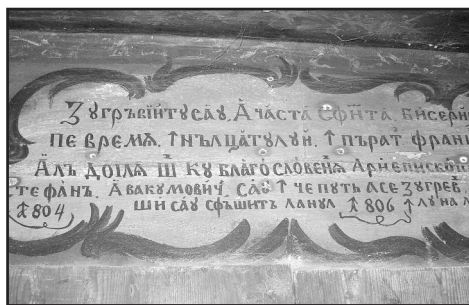 Зꙋгрѣвитꙋсаꙋ. Ачаста Сфꙟта. Бисери
пе времѧ. Ꙟнълцатꙋлꙋй. Ꙟпърат франц
Алъ доилѧ ші кꙋ благословенїѧ Архиепископ
тефанъ. Авакꙋмовичꙋ. саꙋ ꙟчепꙋтъ асе зꙋгрев
҂ꙟ804 ши саꙋ сфѫшитъ ланꙋл ꙟ806 ꙟ лꙋна